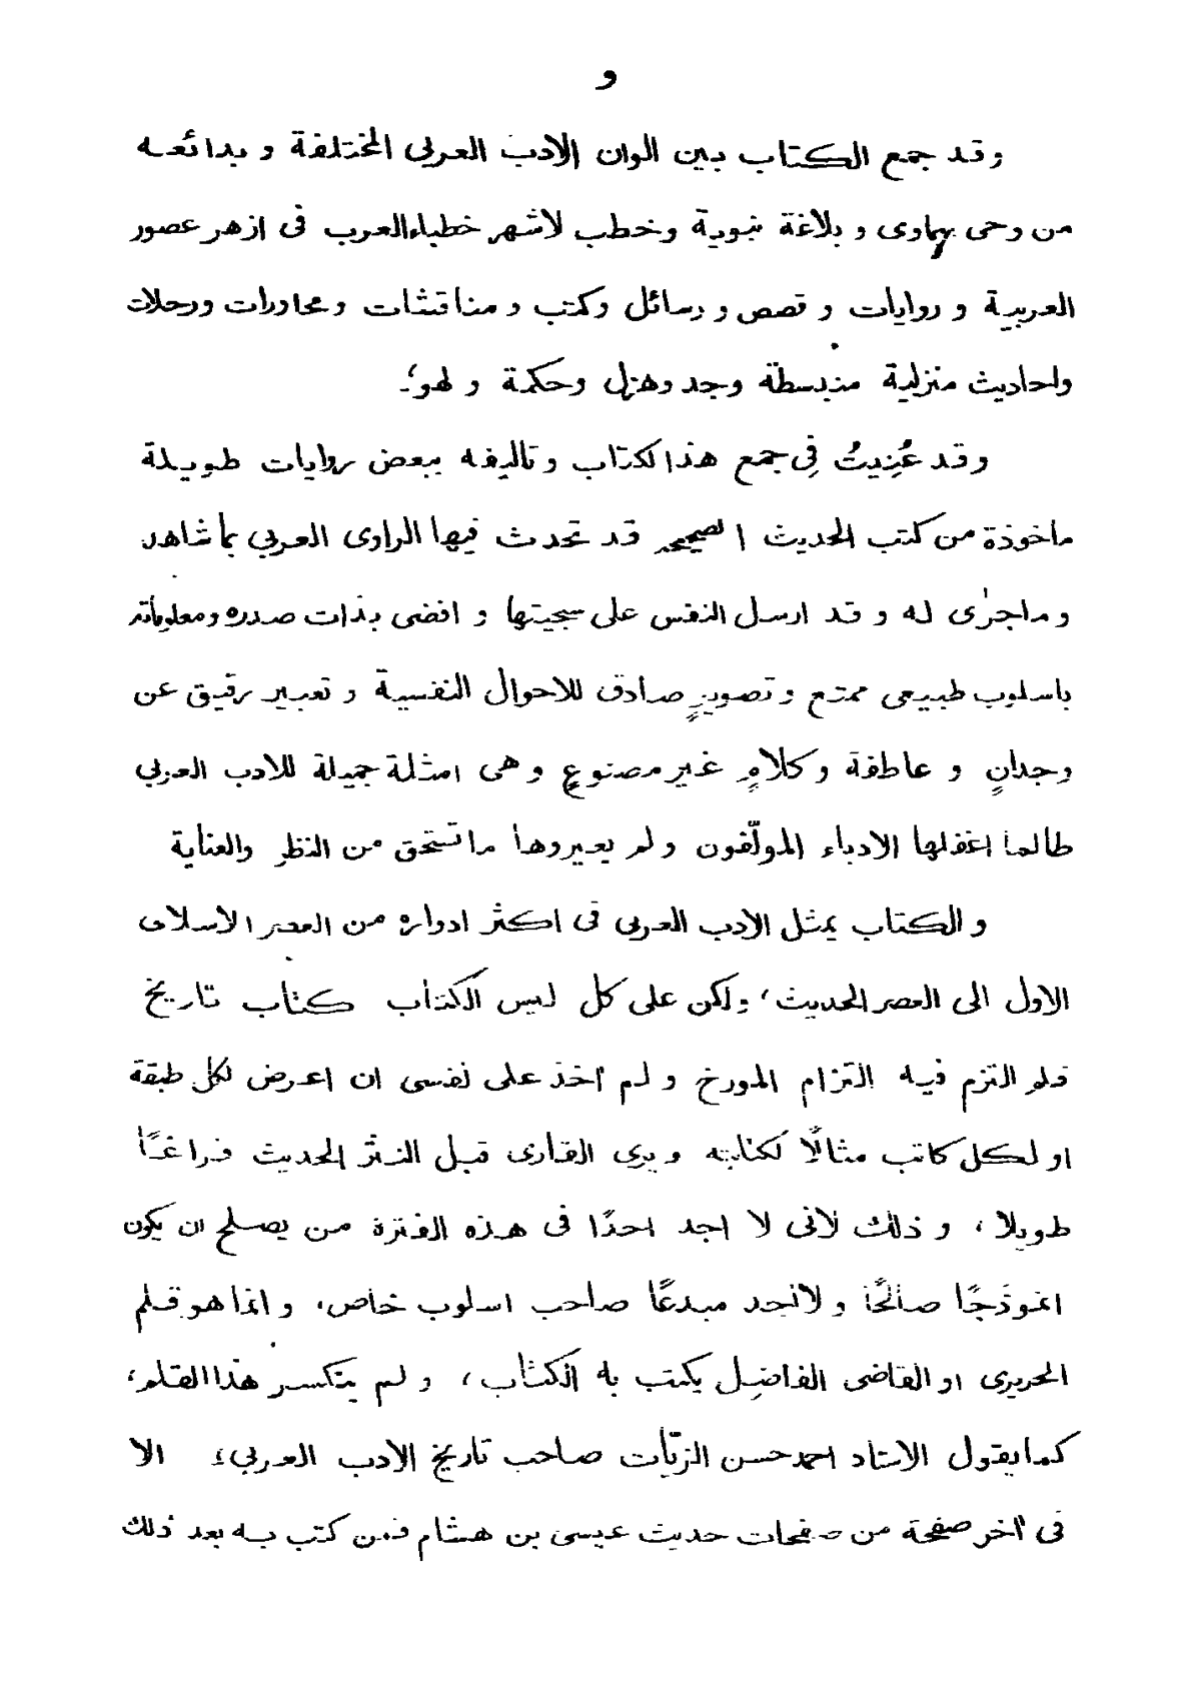 و
وقد جمع الكتاب بين الوان الادب العربي المختلفة و بدائعه
من وحى سماوى و بلاغة نبوية وخطب لاشهر خطباءالعرب فى ازهر عصور
العربية و روايات و قصص و رسائل وكتب و مناقشات و محاورات ورحلات
واحاديث منزلية منبسطة وجد وهزل وحكمة و لهو؛
وقد عُنِيتُ فِى جمع هذالكتاب و تاليفه ببعض روايات طويلة
ماخوذة من كتب الحديث الصحيحه قد تحدث فيها الراوى العربي بما شاهد
و ماجرٰى له و قد ارسل النفس على سجيتها و افضى بذات صدره ومعلوماته
باسلوب طبيعى ممتع و تصويرٍ صادق للاحوال النفسية و تعبير رقيق عن
وجدانٍ و عاطفة وكلامٍ غير مصنوعٍ و هى امثلة جميلة للادب العربي
طالما اغفلها الادباء المولّفون و لم يعيروها ما تستحق من النظر والعناية
و الكتاب يمثل الادب العربى فى اكثر ادواره من العصر الاسلامى
الاول الى العصر الحديث، ولكن على كل ليس الكتاب كتاب تاريخ
فلم التزم فيه التزام المورخ و لم آخذ على نفسى ان اعرض لكل طبقة
او لكل كاتب مثالًا لكتابته و يرى القارى قبل النثر الحديث فراغًا
طويلا، و ذلك لانى لا اجد احدًا فى هذه الفترة من يصلح ان يكون
انموذجًا صالحًا و لانجد مبدعًا صاحب اسلوب خاص، و انما هو قلم
الحريرى او القاضى الفاضل يكتب به الكتاب، و لم يتكسر هذا القلم،
كما يقول الاستاد احمد حسن الزيّات صاحب تاريخ الادب العربي، الا
فى آخر صفحة من صفحات حديث عيسى بن هشام فمن كتب به بعد ذلك